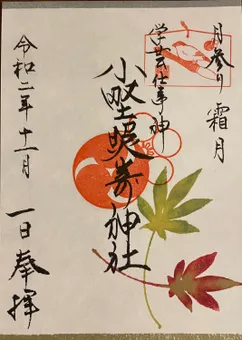 月参り
霜月
学芸仕事神
小野照崎神社
令和二年十一月
一日奉拝